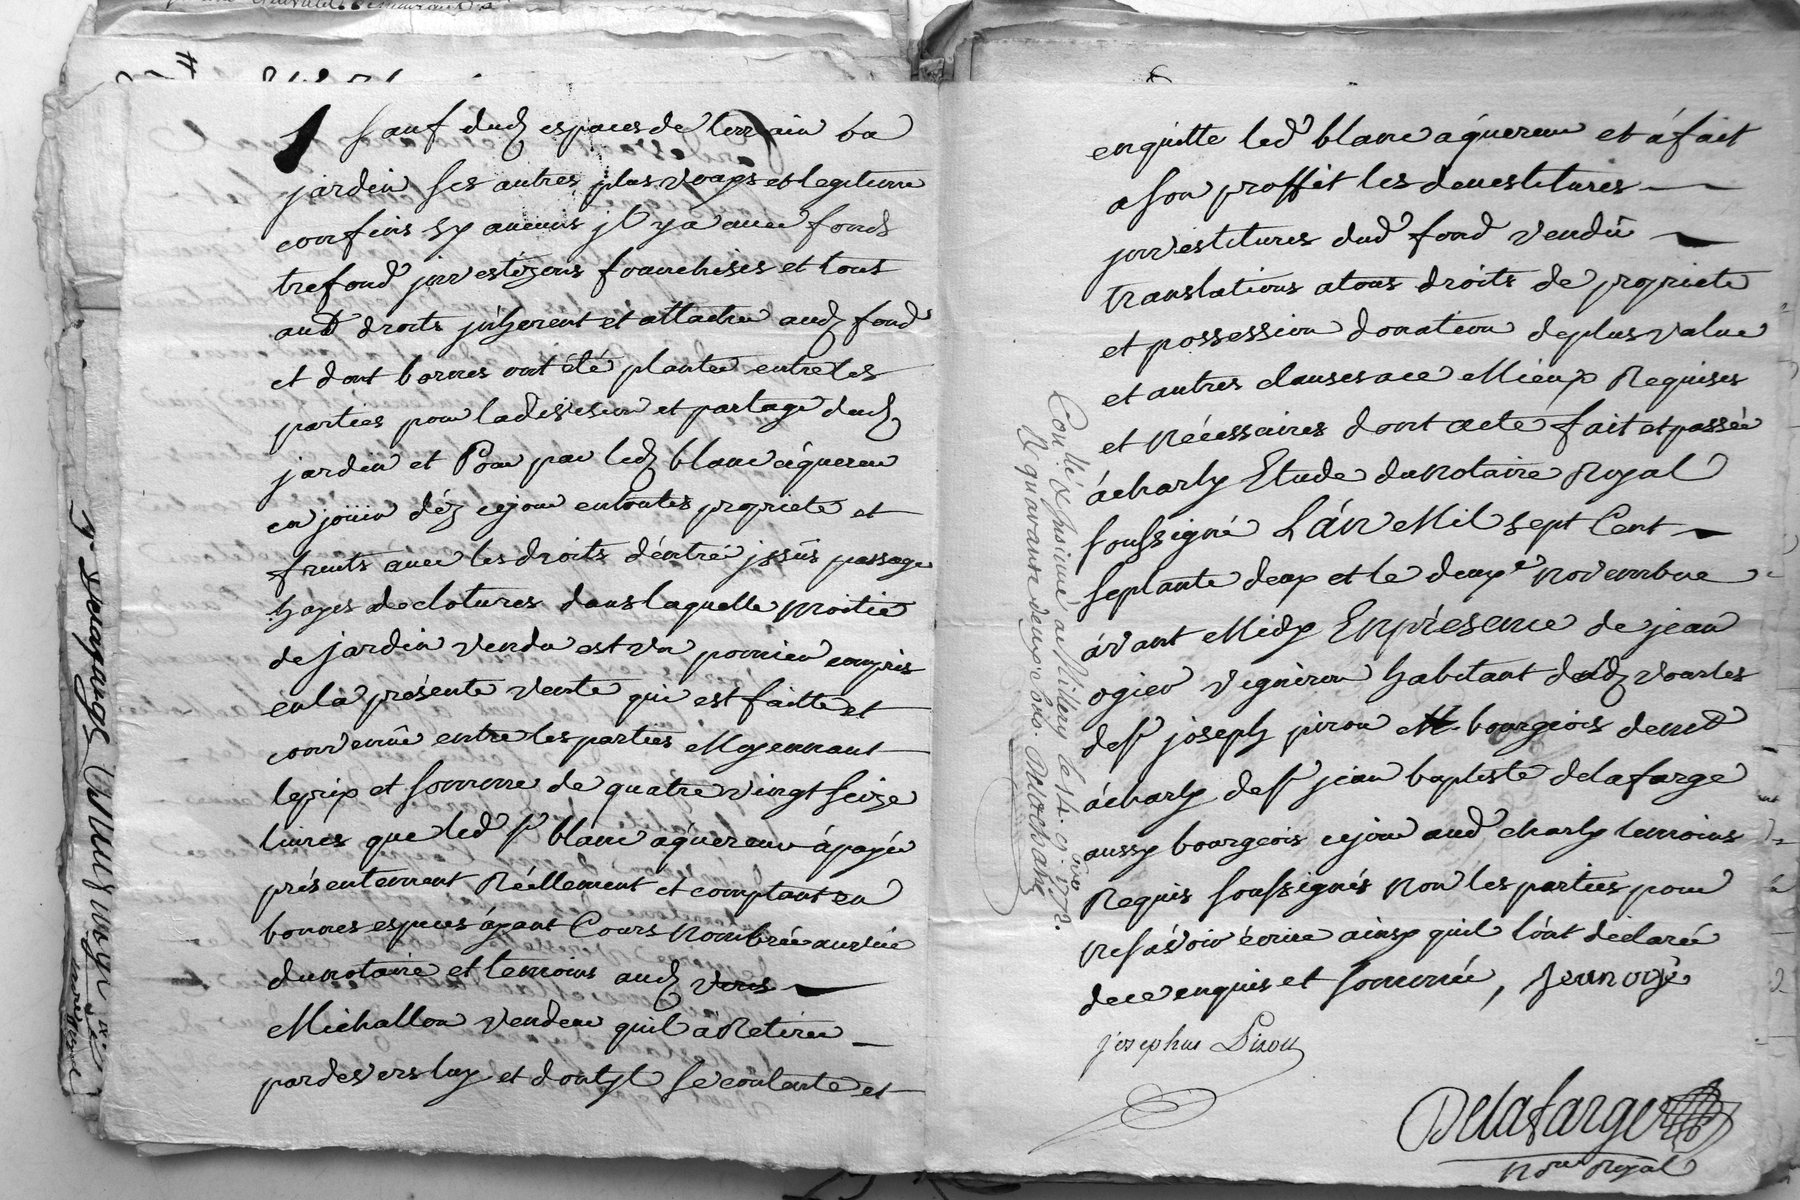 sauf dud espaces de terrain ou
jardin ses autres plus vrays et legitime
confins sy aucuns jl y a avec fonds
trefond jnvestizons franchises et tous
aud droits jnherent et attachée aud fond
et dont bornes ont été plantée entre les
parties pour la division et partage dud
jardin et Pour par led blanc aquereur
en joüir déz ce jour en toutes propriete et
fruits avec les droits d'entré jssüs passage
hayes de clotures dans laquelle moitié
de jardin vendu est un pomier compris
en la présente vente qui est faitte et
convenüe entre les parties Moyennant
le prix et somme de quatre vingt seize
livres que led sr blanc aquereur á payée
présentement Réellement et comptant en
bonnes espéces áyant Cours Nombrée au veüe
du notaire et temoins aud
Michallon vendeur quil a Retirée
pardevers luy et dont jl se contente et
en quitte led blanc aquereur et á fait
a son proffit les devestitures
jnvestitures dud fond vendü
translations atous droits de propriete
et possession donation de plus value
et autres clauses a ce Mieux Requises
et Nécessaires dont acte fait et passée
á charly Etude du notaire Royal
soussigné L'án Mil sept Cent
septante deux et le deuxe novembre
ávant Midy En présence de jean
ogier vigneron habitant dud vourles
de sr joseph piron bourgeois demt
á charly de sr jean baptiste delafarge
aussy bourgeois ce jour aud charly temoins
Requis soussignés Non les parties pour
ne sávoir écrire ainsy quil l'ont déclarée
de ce enquis et sommée, Jean ogié
josephus Piron
Delafarge
Nore Royal
Conllé & jnsinué a Millery le 14. 9bre 1772.
R quarante deux sols. Delochane